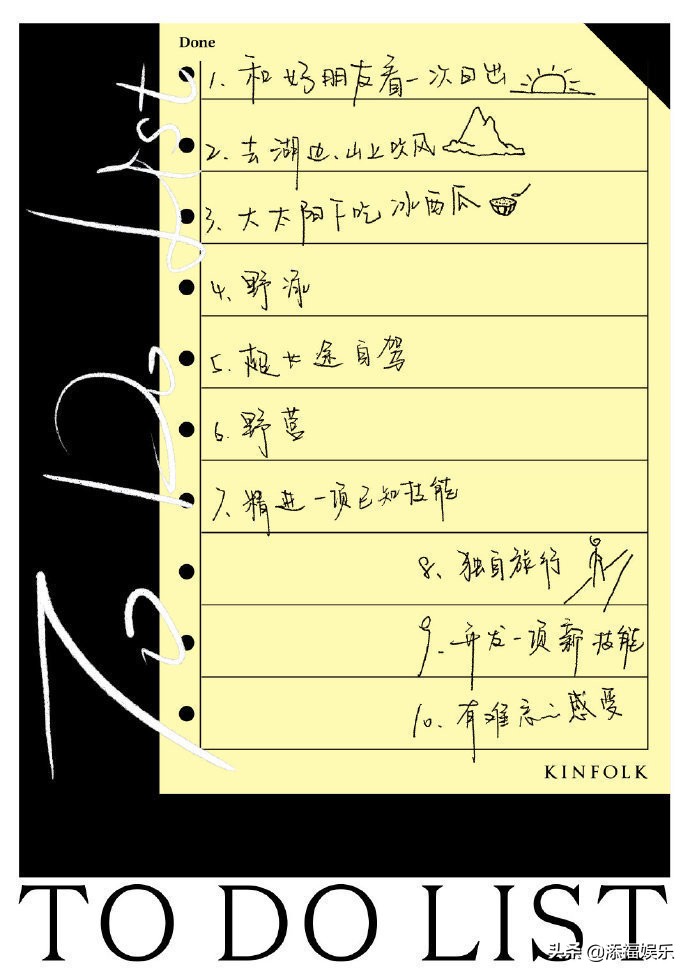 Done
1. 和好朋友看一次日出
2、去湖边、山上吹风
3、大太阳下吃冰西瓜
4、野泳
5、超长途自驾
6、野营
7、精进一项已知技能
8、独自旅行
9、开发一项新技能
10、有难忘心感受
KINFOLK
To Do List
TO DO LIST
头条 @添福娱乐